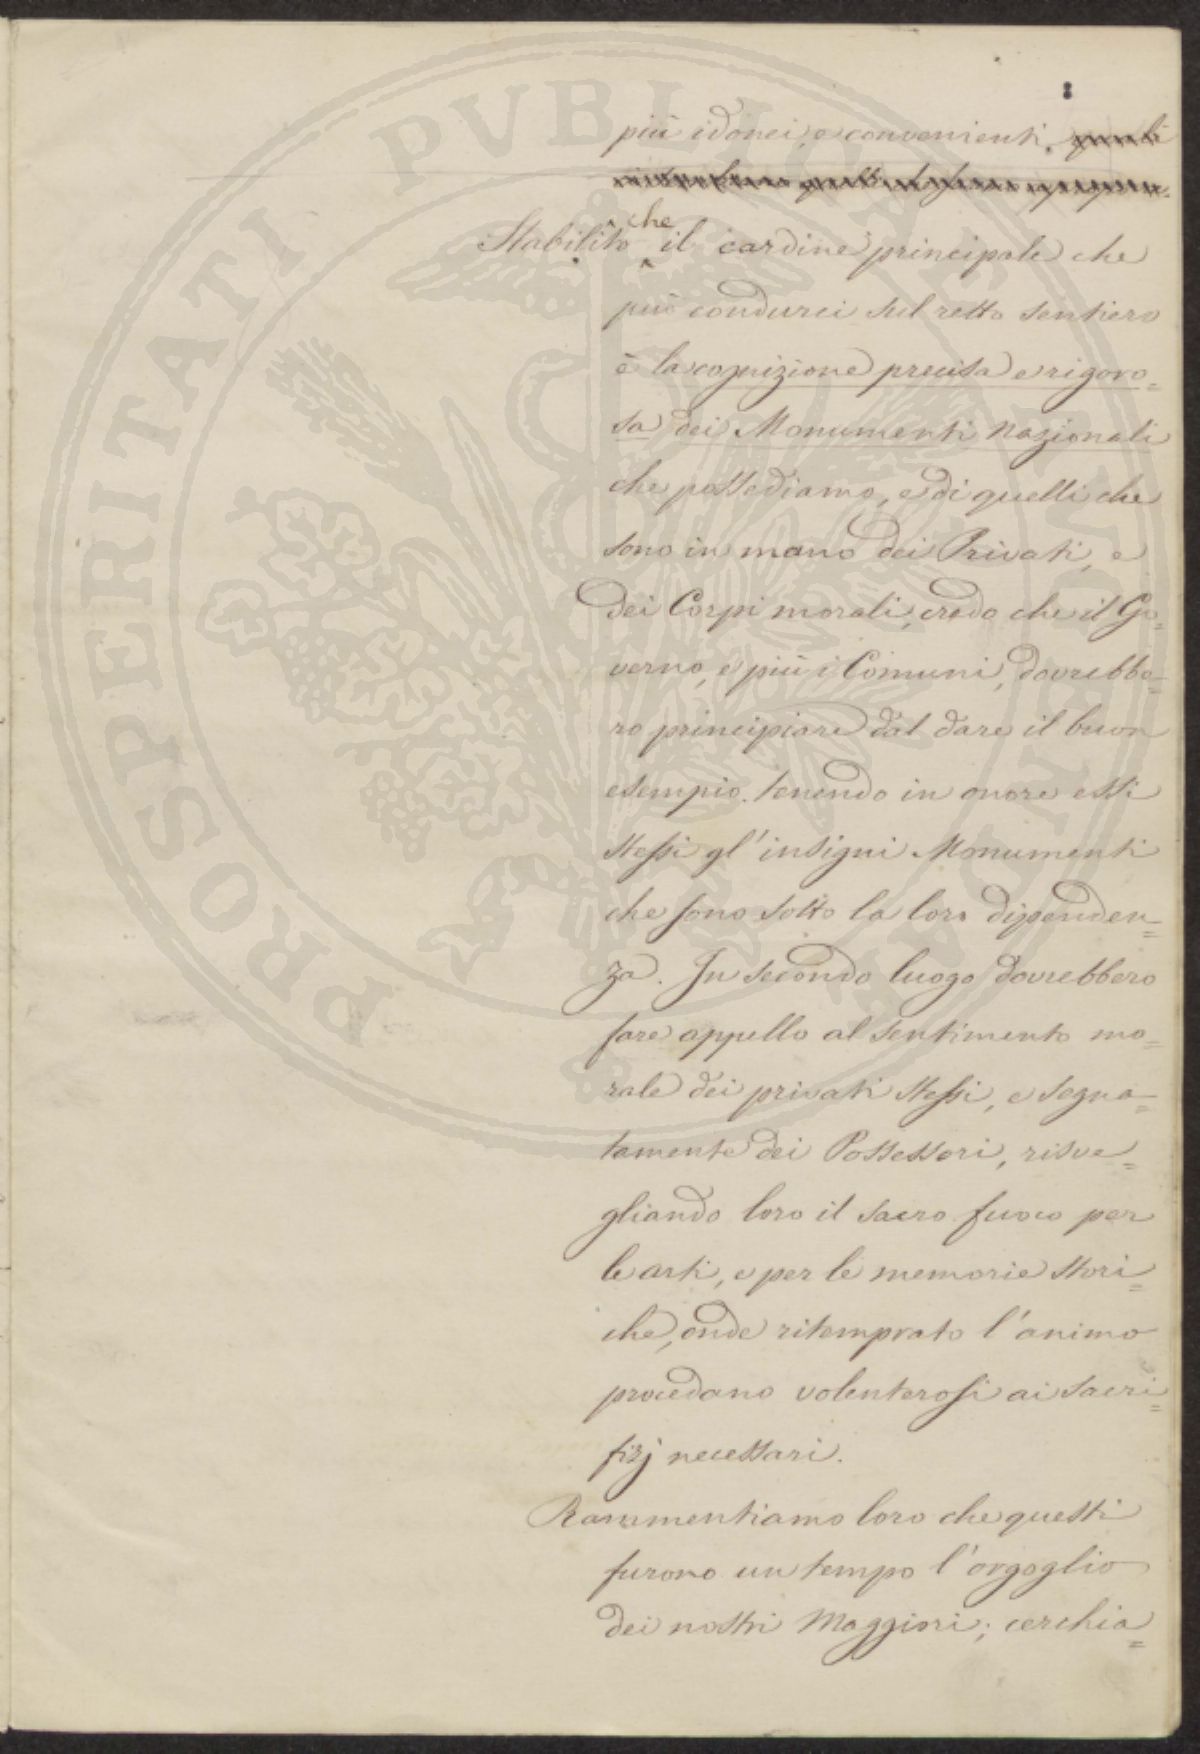 più idonei, e convenienti.
Stabilito che il cardine principale che
può condurci sul retto sentiero
è la cognizione precisa e rigoro=
sa dei Monumenti nazionali
che possediamo, e di quelli che
sono in mano dei Privati, e
dei Corpi morali, credo che il Go=
verno, e più i Comuni, dovrebbe=
ro principiare dal dare il buon
esempio. tenendo in onore essi
stessi gl'insigni Monumenti
che sono sotto la loro dipenden=
za. In secondo luogo dovrebbero
fare appello al sentimento mo=
rale dei privati stessi, e segna=
tamente dei Possessori, risve=
gliando loro il sacro fuoco per
le arti, e per le memorie stori=
che, onde ritemprato l'animo
procedano volenterosi ai sacri=
fizj necessari.
Rammentiamo loro che questi
furono un tempo l'orgoglio
dei nostri Maggiori; cerchia=
PROSPERITATI PVBLICAE